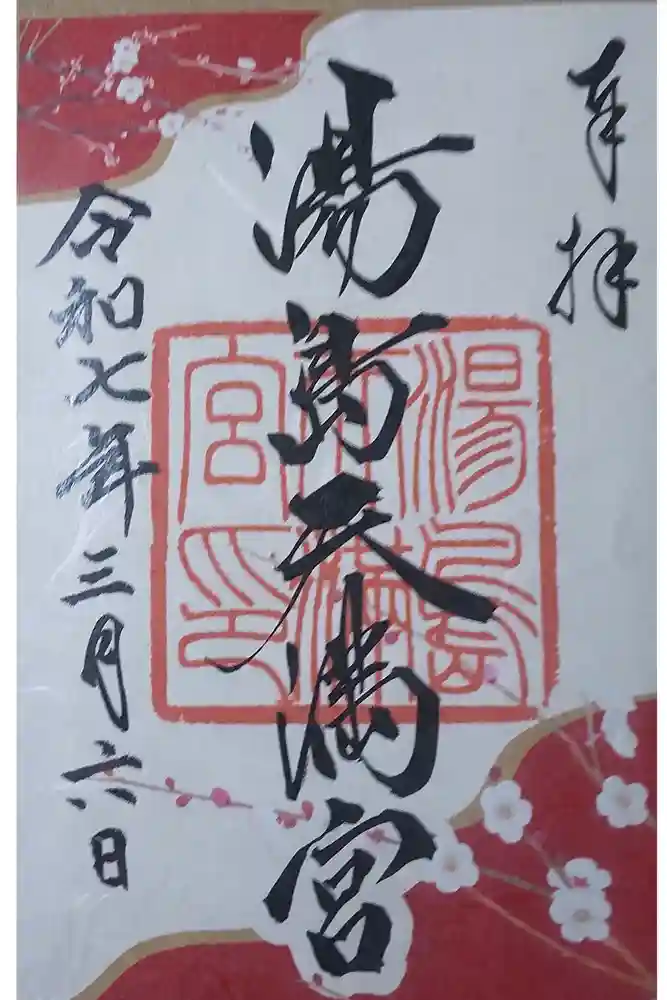 奉拝
湯島天満宮
湯島天満宮印
令和七年三月六日